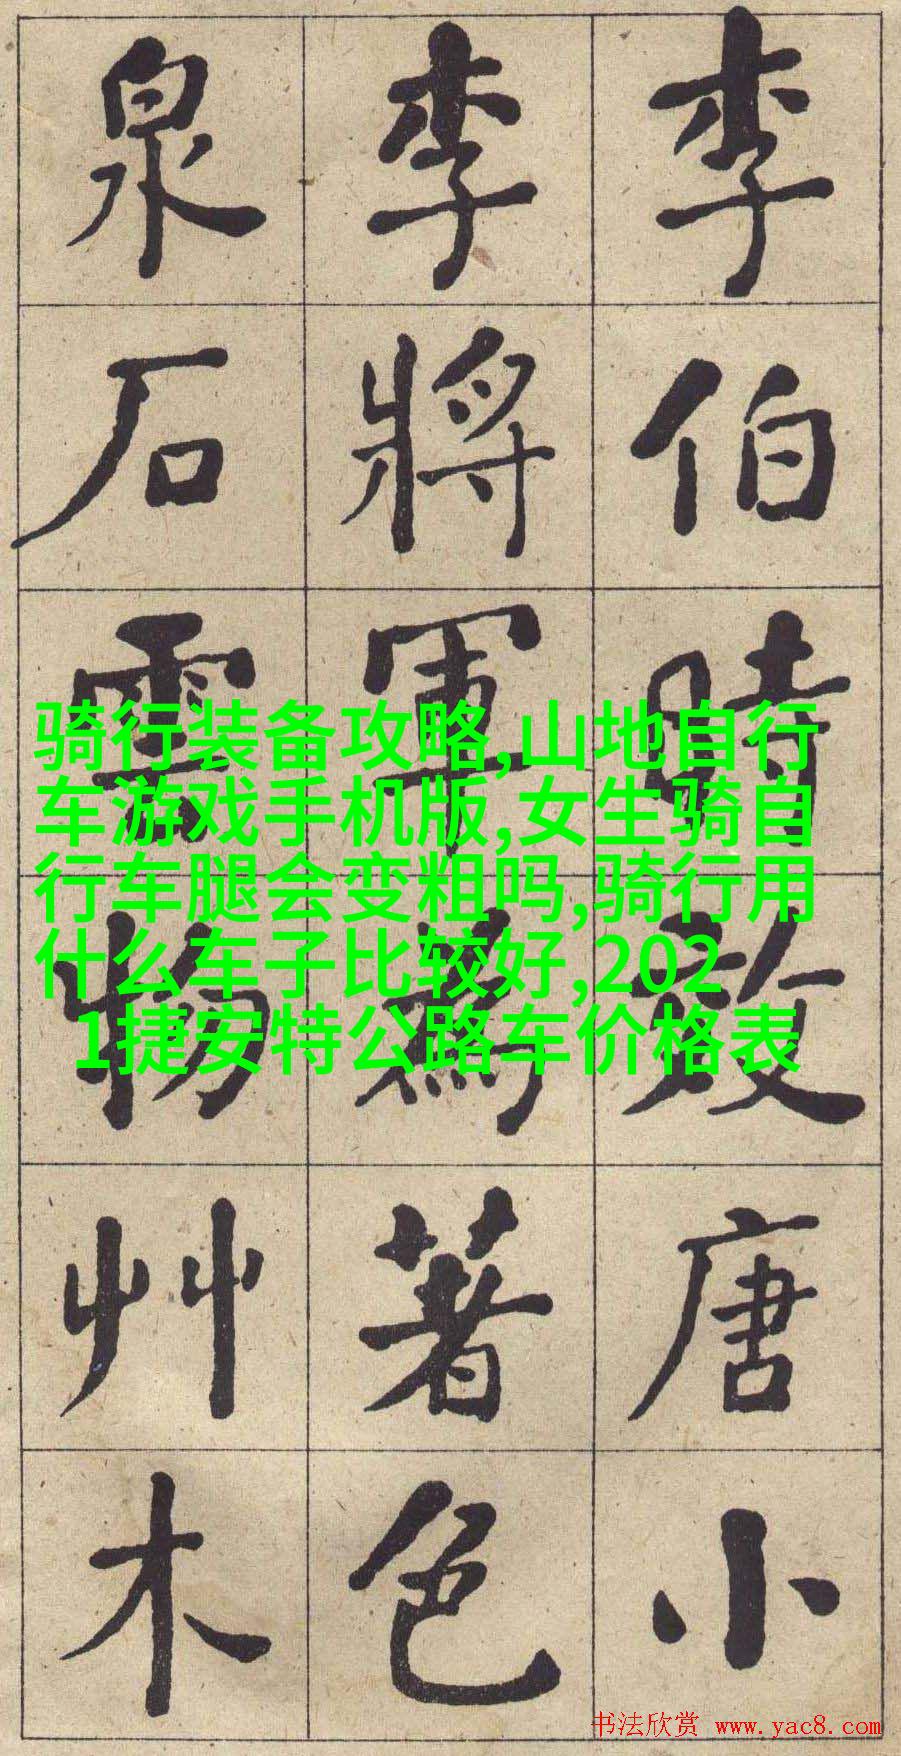 李伯時效唐小
李將軍為著色
泉石雲物艸木
骑行装备攻略,山地自行
车游戏手机版,女生骑自
行车腿会变粗吗,骑行用
什么车子比较好,202
1捷安特公路车价格表
书法欣赏 www.yac8.com